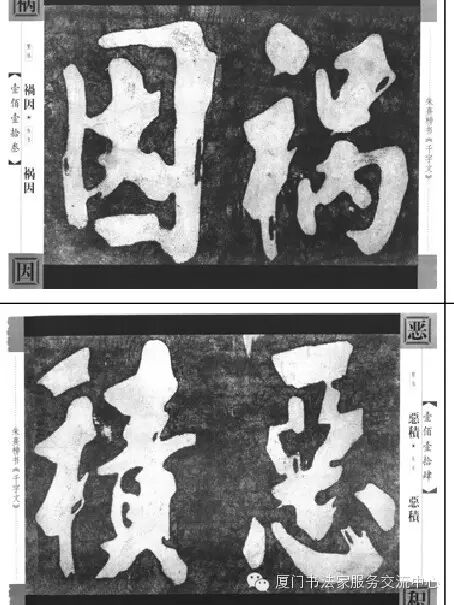 朱熹榜书《千字文》
禍因
祸
禍因・祸因
【壹佰壹拾叁】
因
恶
【壹佰壹拾肆】
惡積・惡積
积
惡積
朱熹榜书《千字文》
厦门书法家服务交流中心